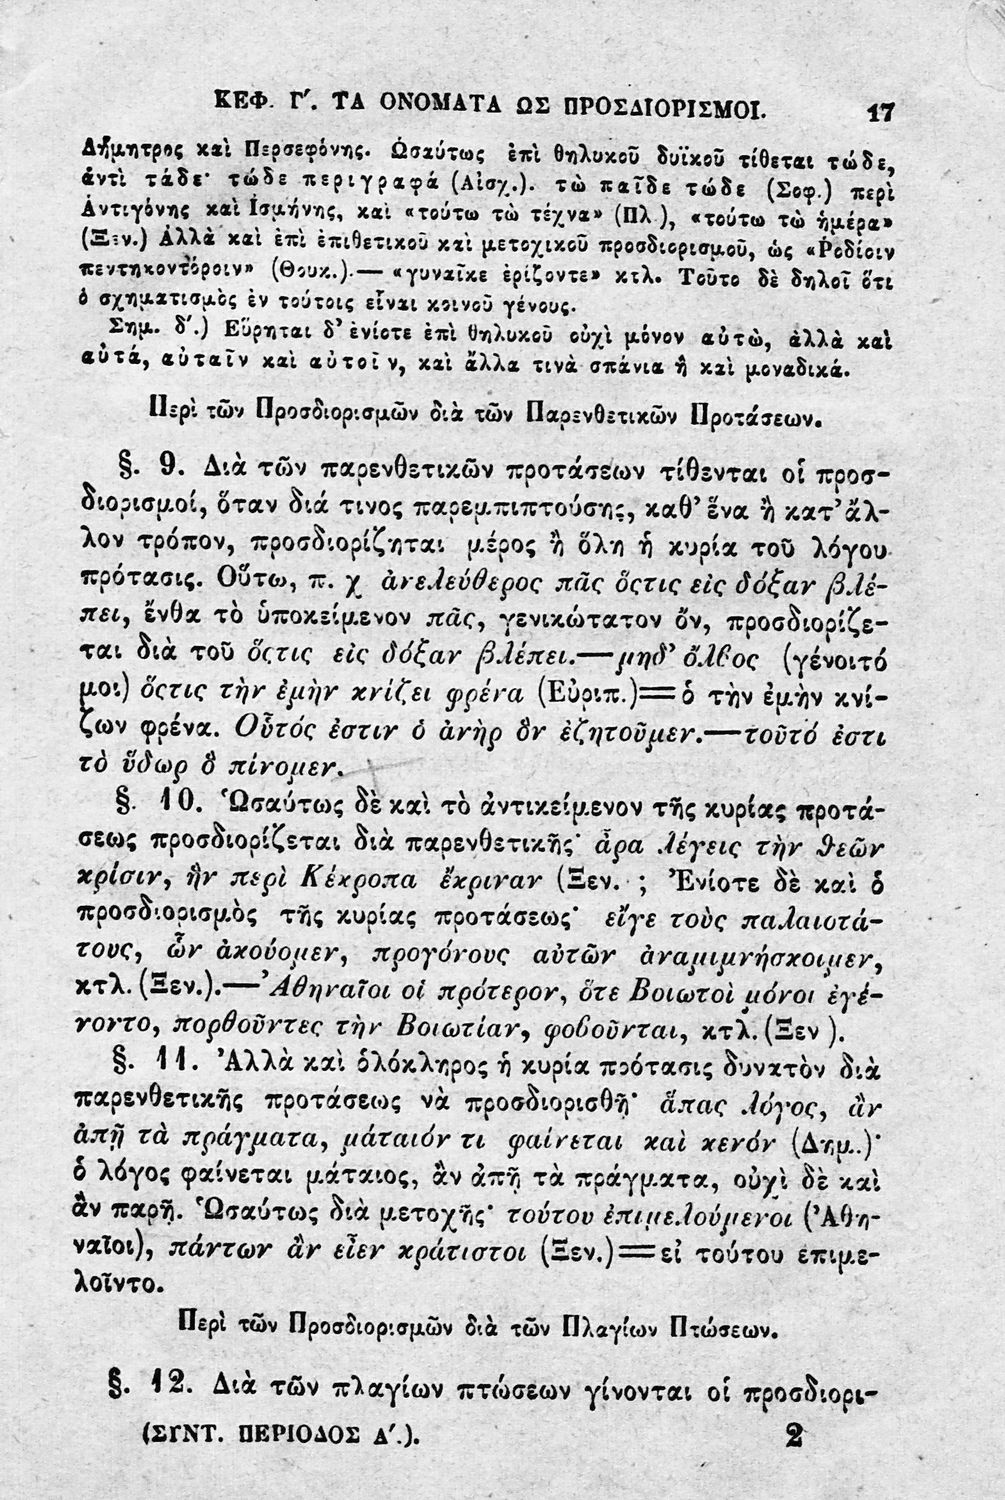 ΚΕΦ. Γʹ. ΤΑ ΟΝΟΜΑΤΑ ΩΣ ΠΡΟΣΔΙΟΡΙΣΜΟΙ. 17
Δήμητρος καὶ Περσεφόνης. Ὡσαύτως ἐπὶ θηλυκοῦ δυϊκοῦ τίθεται τώδε,
ἀντὶ τάδε· τώδε περιγραφά (Αἰσχ.). τὼ παῖδε τώδε (Σοφ.) περὶ
Ἀντιγόνης καὶ Ἰσμήνης, καὶ «τούτω τὼ τέχνα» (Πλ.), «τούτω τὼ ἡμέρα»
(Ξεν.) Ἀλλὰ καὶ ἐπὶ ἐπιθετικοῦ καὶ μετοχικοῦ προσδιορισμοῦ, ὡς «Ῥοδίοιν
πεντηκοντόροιν» (Θουκ.).— «γυναῖκε ἐρίζοντε» κτλ. Τοῦτο δὲ δηλοῖ ὅτι
ὁ σχηματισμὸς ἐν τούτοις εἶναι κοινοῦ γένους.
Σημ. δʹ.) Εὕρηται δ' ἐνίοτε ἐπὶ θηλυκοῦ οὐχὶ μόνον αὐτὼ, ἀλλὰ καὶ
αὐτά, αὐταῖν καὶ αὐτοῖν, καὶ ἄλλα τινὰ σπάνια ἢ καὶ μοναδικά.
Περὶ τῶν Προσδιορισμῶν διὰ τῶν Παρενθετικῶν Προτάσεων.
§. 9. Διὰ τῶν παρενθετικῶν προτάσεων τίθενται οἱ προσ-
διορισμοί, ὅταν διά τινος παρεμπιπτούσης, καθ' ἕνα ἢ κατ' ἄλ-
λον τρόπον, προσδιορίζηται μέρος ἢ ὅλη ἡ κυρία τοῦ λόγου
πρότασις. Οὕτω, π. χ ἀνελεύθερος πᾶς ὅςτις εἰς δόξαν βλέ-
πει, ἔνθα τὸ ὑποκείμενον πᾶς, γενικώτατον ὄν, προσδιορίζε-
ται διὰ τοῦ ὅςτις εἰς δόξαν βλέπει.— μηδ' ὄλβος (γένοιτό
μοι) ὅςτις τὴν ἐμὴν κνίζει φρένα (Εὐριπ.)=ὁ τὴν ἐμὴν κνί-
ζων φρένα. Οὗτός ἐστιν ὁ ἀνὴρ ὃν ἐζητοῦμεν.—τοῦτό ἐστι
τὸ ὕδωρ ὃ πίνομεν.
§. 10. Ὡσαύτως δὲ καὶ τὸ ἀντικείμενον τῆς κυρίας προτά-
σεως προσδιορίζεται διὰ παρενθετικῆς· ἆρα λέγεις τὴν θεῶν
κρίσιν, ἣν περὶ Κέκροπα ἔκριναν (Ξεν. ; Ἐνίοτε δὲ καὶ ὁ
προσδιορισμὸς τῆς κυρίας προτάσεως· εἴγε τοὺς παλαιοτά-
τους, ὧν ἀκούομεν, προγόνους αὐτῶν ἀναμιμνήσκοιμεν,
κτλ. (Ξεν.).—Ἀθηναῖοι οἱ πρότερον, ὅτε Βοιωτοὶ μόνοι ἐγέ-
νοντο, πορθοῦντες τὴν Βοιωτίαν, φοβοῦνται, κτλ. (Ξεν ).
§. 11. Ἀλλὰ καὶ ὁλόκληρος ἡ κυρία πρότασις δυνατὸν διὰ
παρενθετικῆς προτάσεως νὰ προσδιορισθῇ· ἅπας λόγος, ἂν
ἀπῇ τὰ πράγματα, μάταιόν τι φαίνεται καὶ κενόν (Δημ.)·
ὁ λόγος φαίνεται μάταιος, ἂν ἀπῇ τὰ πράγματα, οὐχὶ δὲ καὶ
ἂν παρῇ. Ὡσαύτως διὰ μετοχῆς· τούτου ἐπιμελούμενοι (Ἀθη-
ναῖοι), πάντων ἂν εἶεν κράτιστοι (Ξεν.)=εἰ τούτου ἐπιμε-
λοῖντο.
Περὶ τῶν Προσδιορισμῶν διὰ τῶν Πλαγίων Πτώσεων.
§. 12. Διὰ τῶν πλαγίων πτώσεων γίνονται οἱ προσδιορι-
(ΣΥΝΤ. ΠΕΡΙΟΔΟΣ Αʹ.). 2